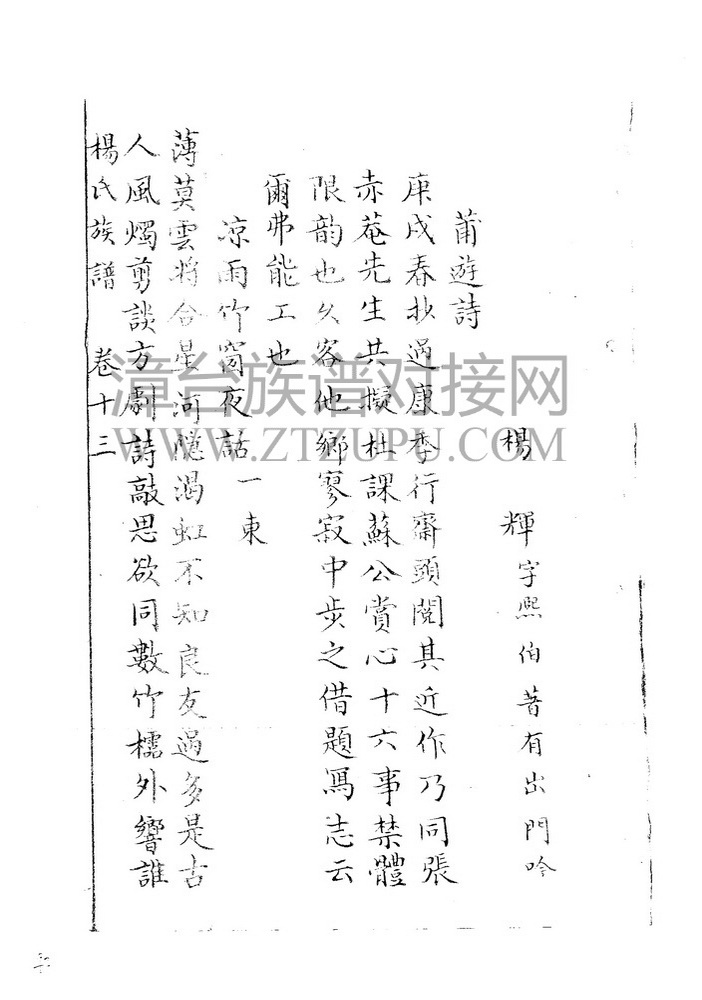 楊 輝字熙伯著有出門吟
莆遊詩
庚戌春抄過康季行齋頭閱其近作乃同張
赤菴先生共擬杜課蘇公賞心十六事禁體
限韵也久客他鄉寥寂中步之借題寫志云
爾弗能工也
凉雨竹窗夜話一東
薄莫雲將合星河隱渴虹不知良友過多是古
人風燭剪談方劇詩敲思欲同數竹櫺外響誰
楊氏族譜 卷十三
漳台族谱对接网
WWW.ZTZUPU.COM